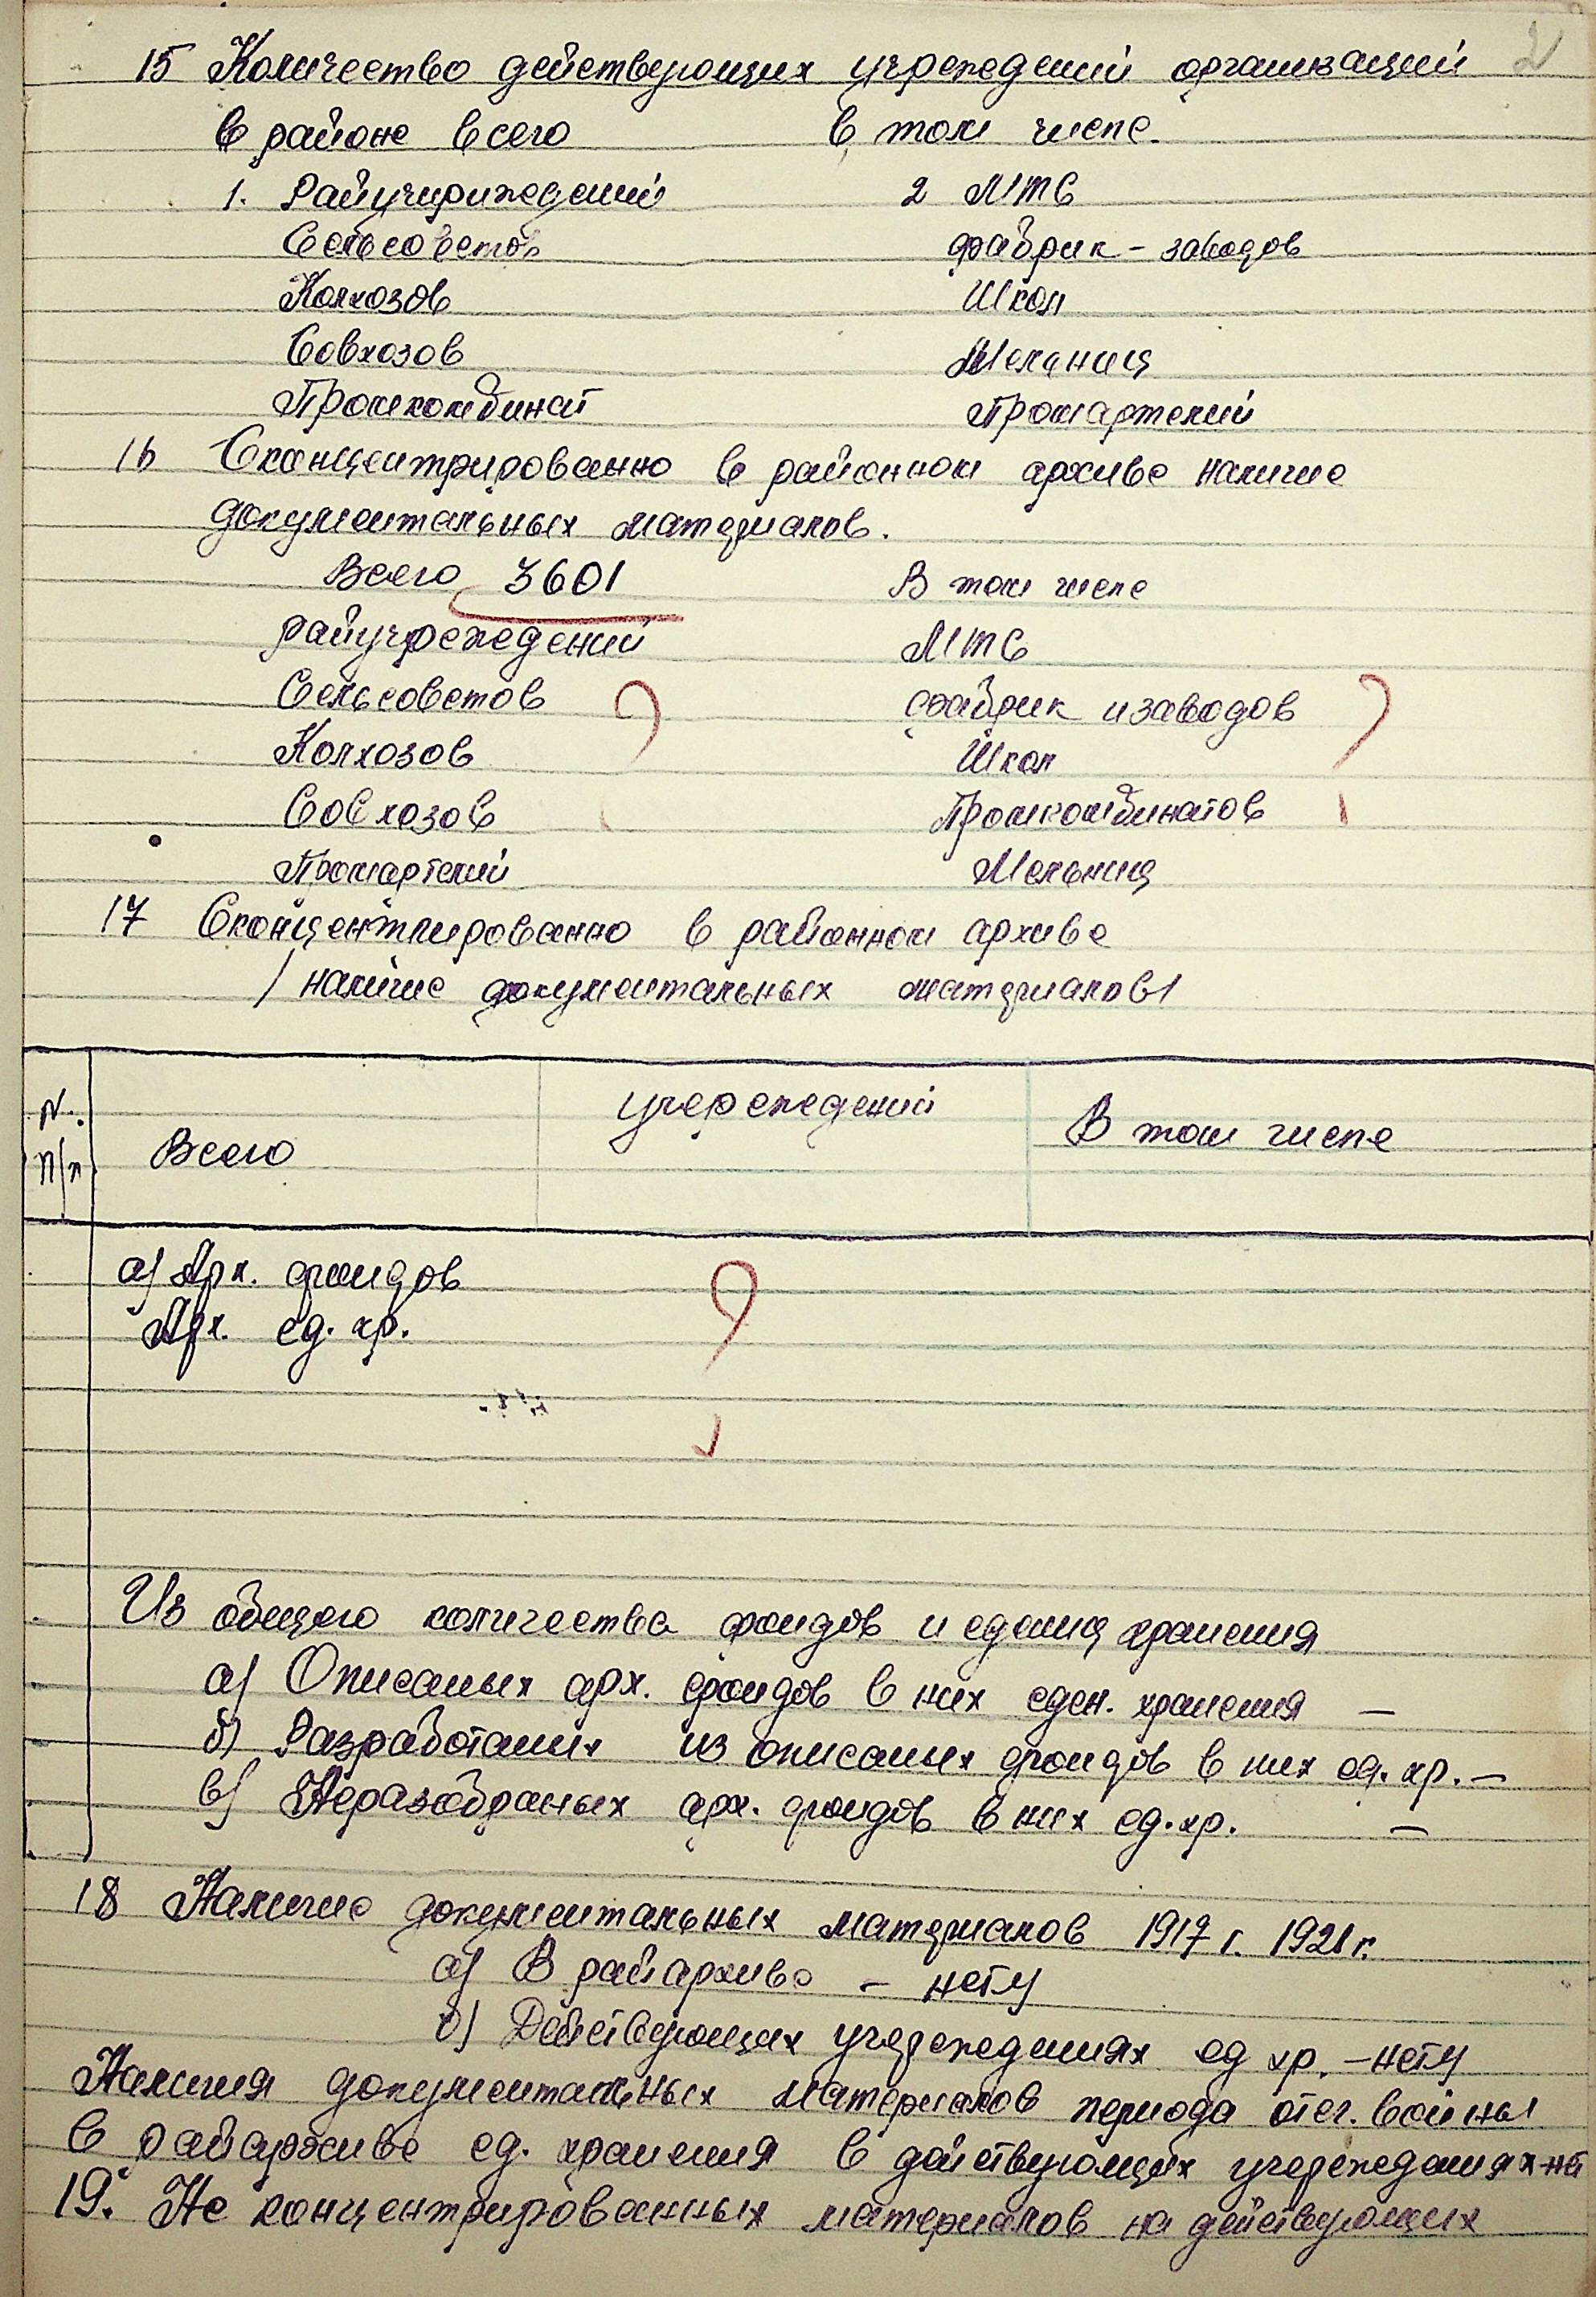 2
15 Количество действующих учреждений организаций
в районе всего в том числе.
1. Райучириждений 2 МТС
Сельсоветов фабрик - заводов
Колхозов Школ
Совхозов Мельниц
Промкомбинат Промартелий
16 Сконцентрированно в районном архиве наличие
документальных материалов.
Всего 3601 В том числе
райучреждений МТС
Сельсоветов фабрик и заводов
Колхозов Школ
Совхозов Промкомбинатов
Промартелий Мельниц
17 Сконцентрированно в районном архиве
/ наличие документальных материалов/
N. учереждений
п/п Всего В том числе
а) Арх. фондов
Арх. ед. хр.
Из общего количества фондов и едениц хранения
а) Описаных арх. фондов в них еден. хранения —
б) Разработаних из описаных фондов в них ед. хр. —
в) Неразобраных арх. фондов в них ед. хр. —
18 Наличие документальных материалов 1917 г. 1921 г.
а) В райархиве — нету
б) Действующих учереждениях ед хр. — нету
Наличия документальных материалов периода отеч. войны
в райархиве ед. хранения в действующих учереждениях-нет
19. Не концентрированных материалов на действующих